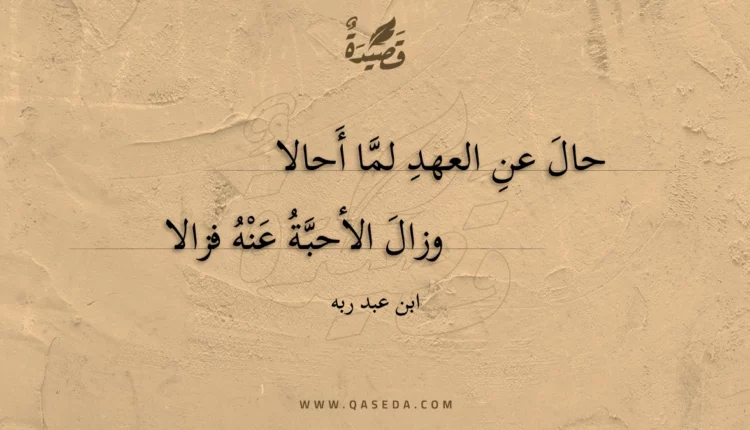 قَصِيْدَةٌ
حالَ عنِ العهدِ لمَّا أَحالا
وزالَ الأحبَّةُ عَنْهُ فزالا
ابن عبد ربه
WWW.QASEDA.COM